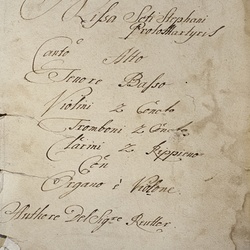 Missa Scti Stephani
Protomartyris
Canto Alto
Tenore Basso
Violini 2 Conclo
Tromboni 2 Conclo
Clarini 2 Reppieno
Con
Organo è Violone
Authore Del Sigre Reütter